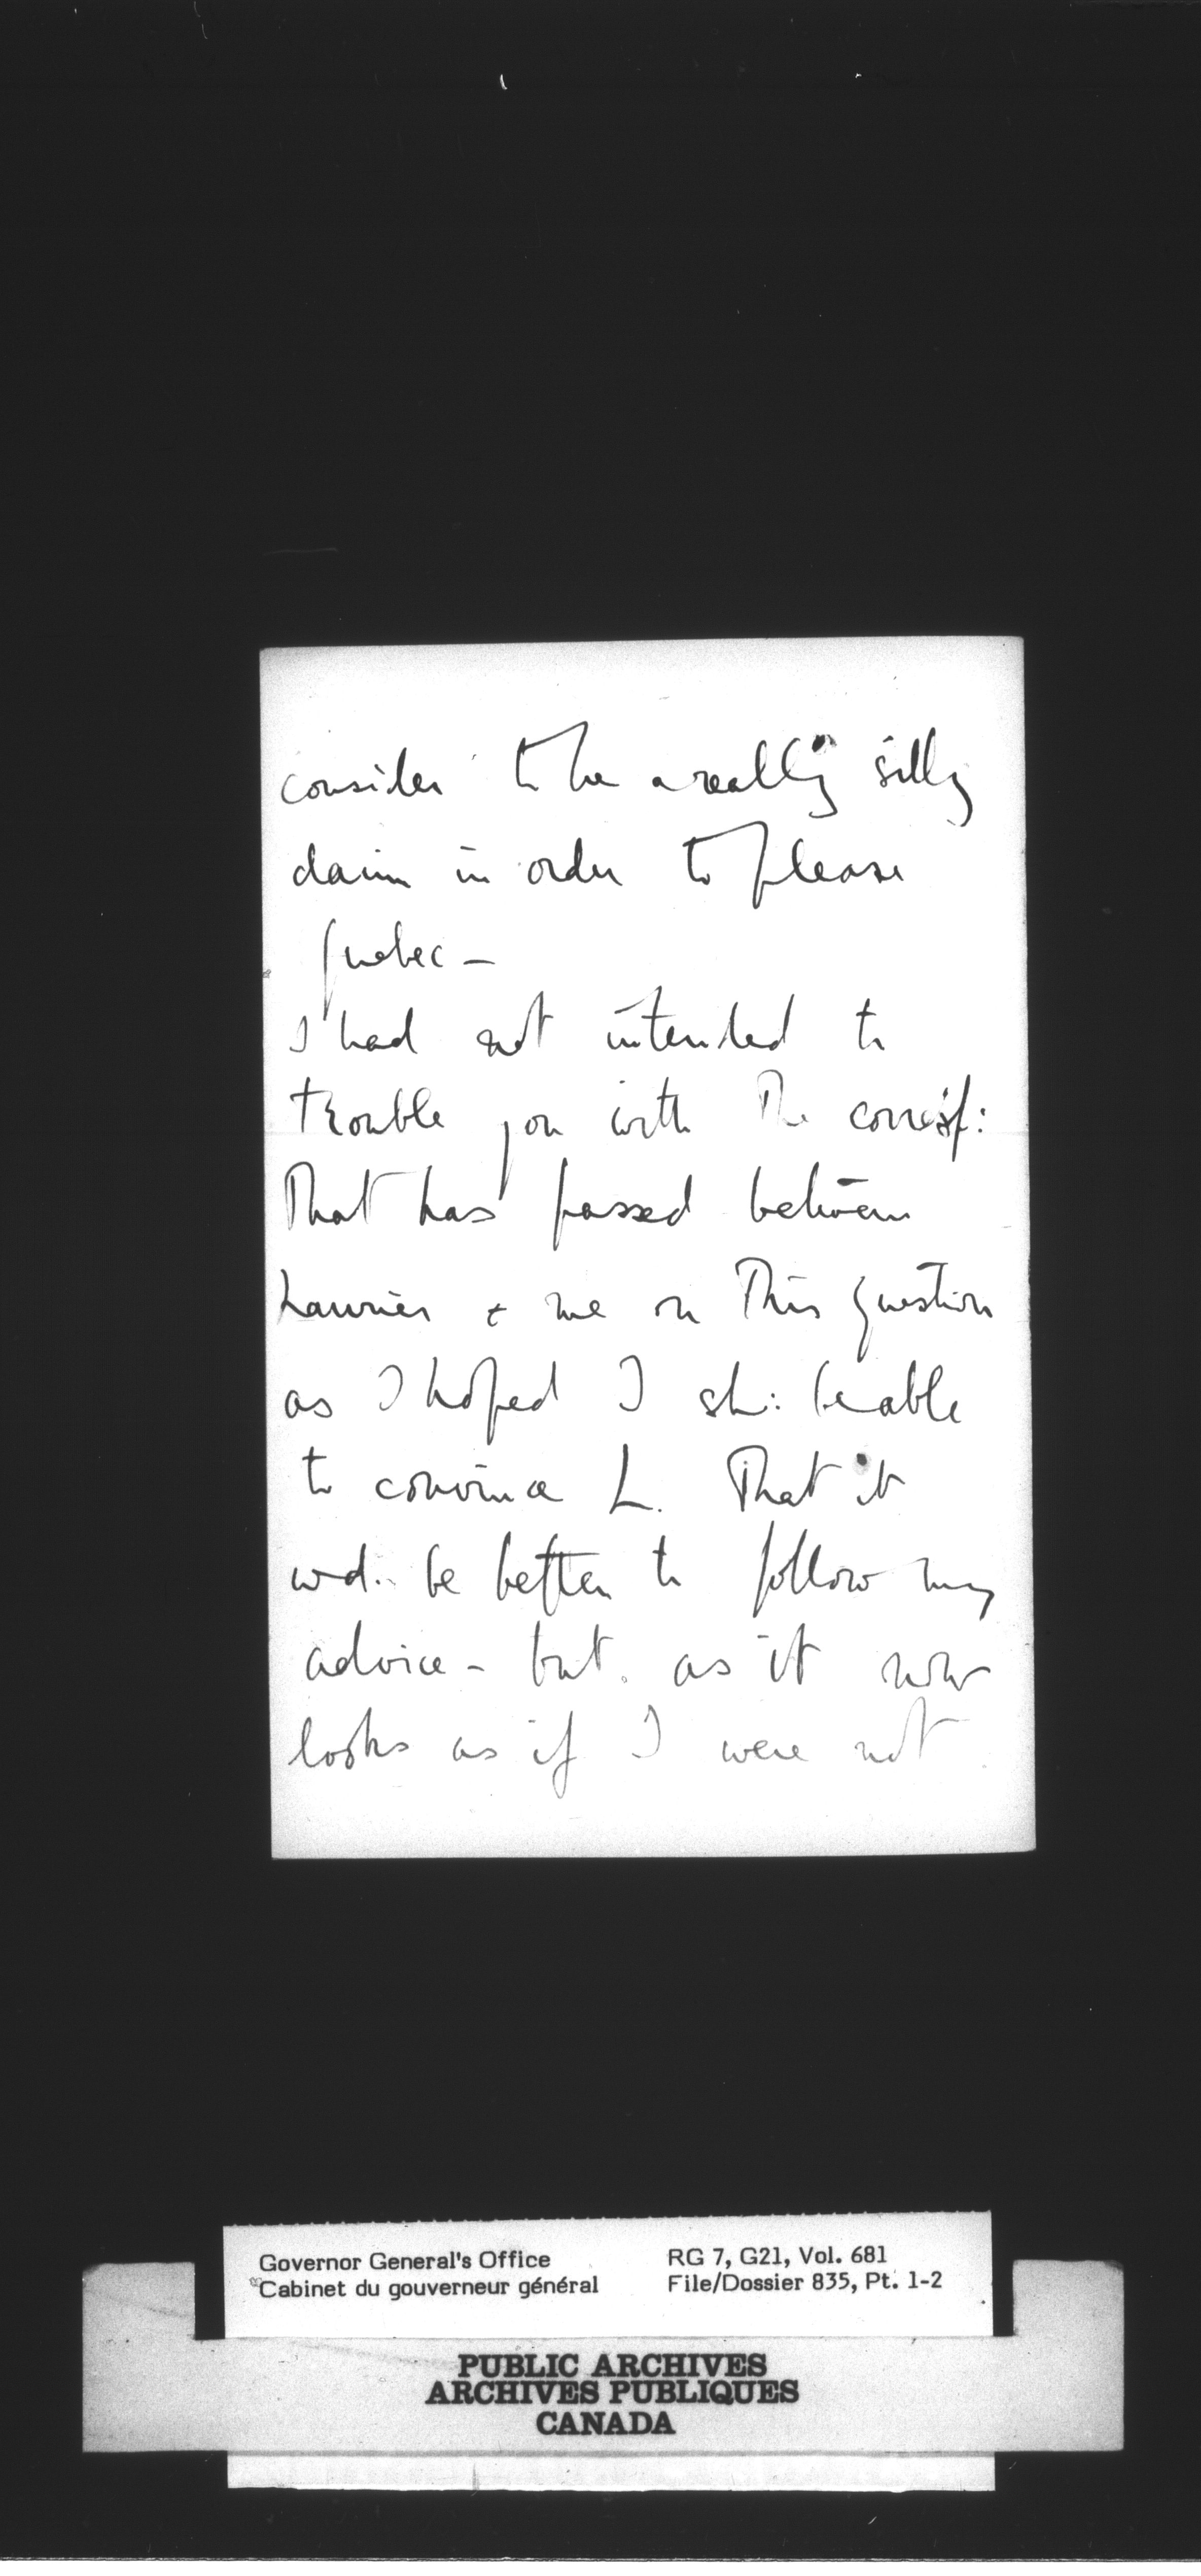 consider to be a really silly
claim in order to please
Quebec –
I had not intended to
trouble you with the corresp:
that has passed between
Laurier & me on this question
as I hoped I sh: be able
to convince L. that it
wd. be better to follow my
advice – but. as it now
looks as if I were not
Governor General's Office RG 7, G21, Vol. 681
Cabinet du gouverneur général File/Dossier 835, Pt. 1-2
PUBLIC ARCHIVES
ARCHIVES PUBLIQUES
CANADA